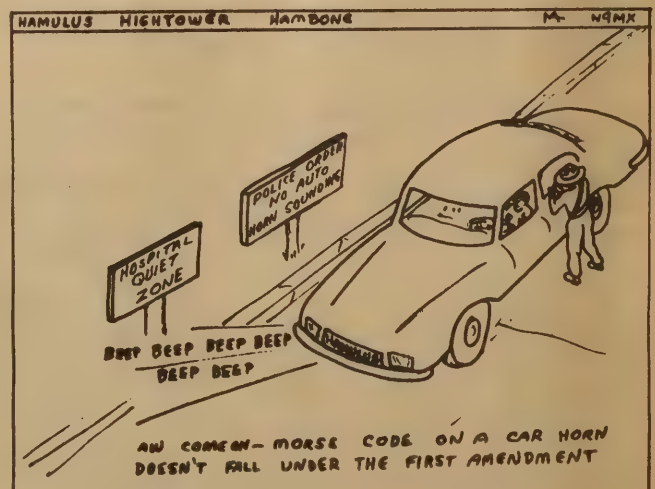 HAMULUS HIGHTOWER HAMBONE N9MX
POLICE ORDER
NO AUTO
HORN SOUNDING
HOSPITAL
QUIET
ZONE
BEEP BEEP BEEP BEEP
BEEP BEEP
AW COME ON- MORSE CODE ON A CAR HORN
DOESN'T FALL UNDER THE FIRST AMENDMENT